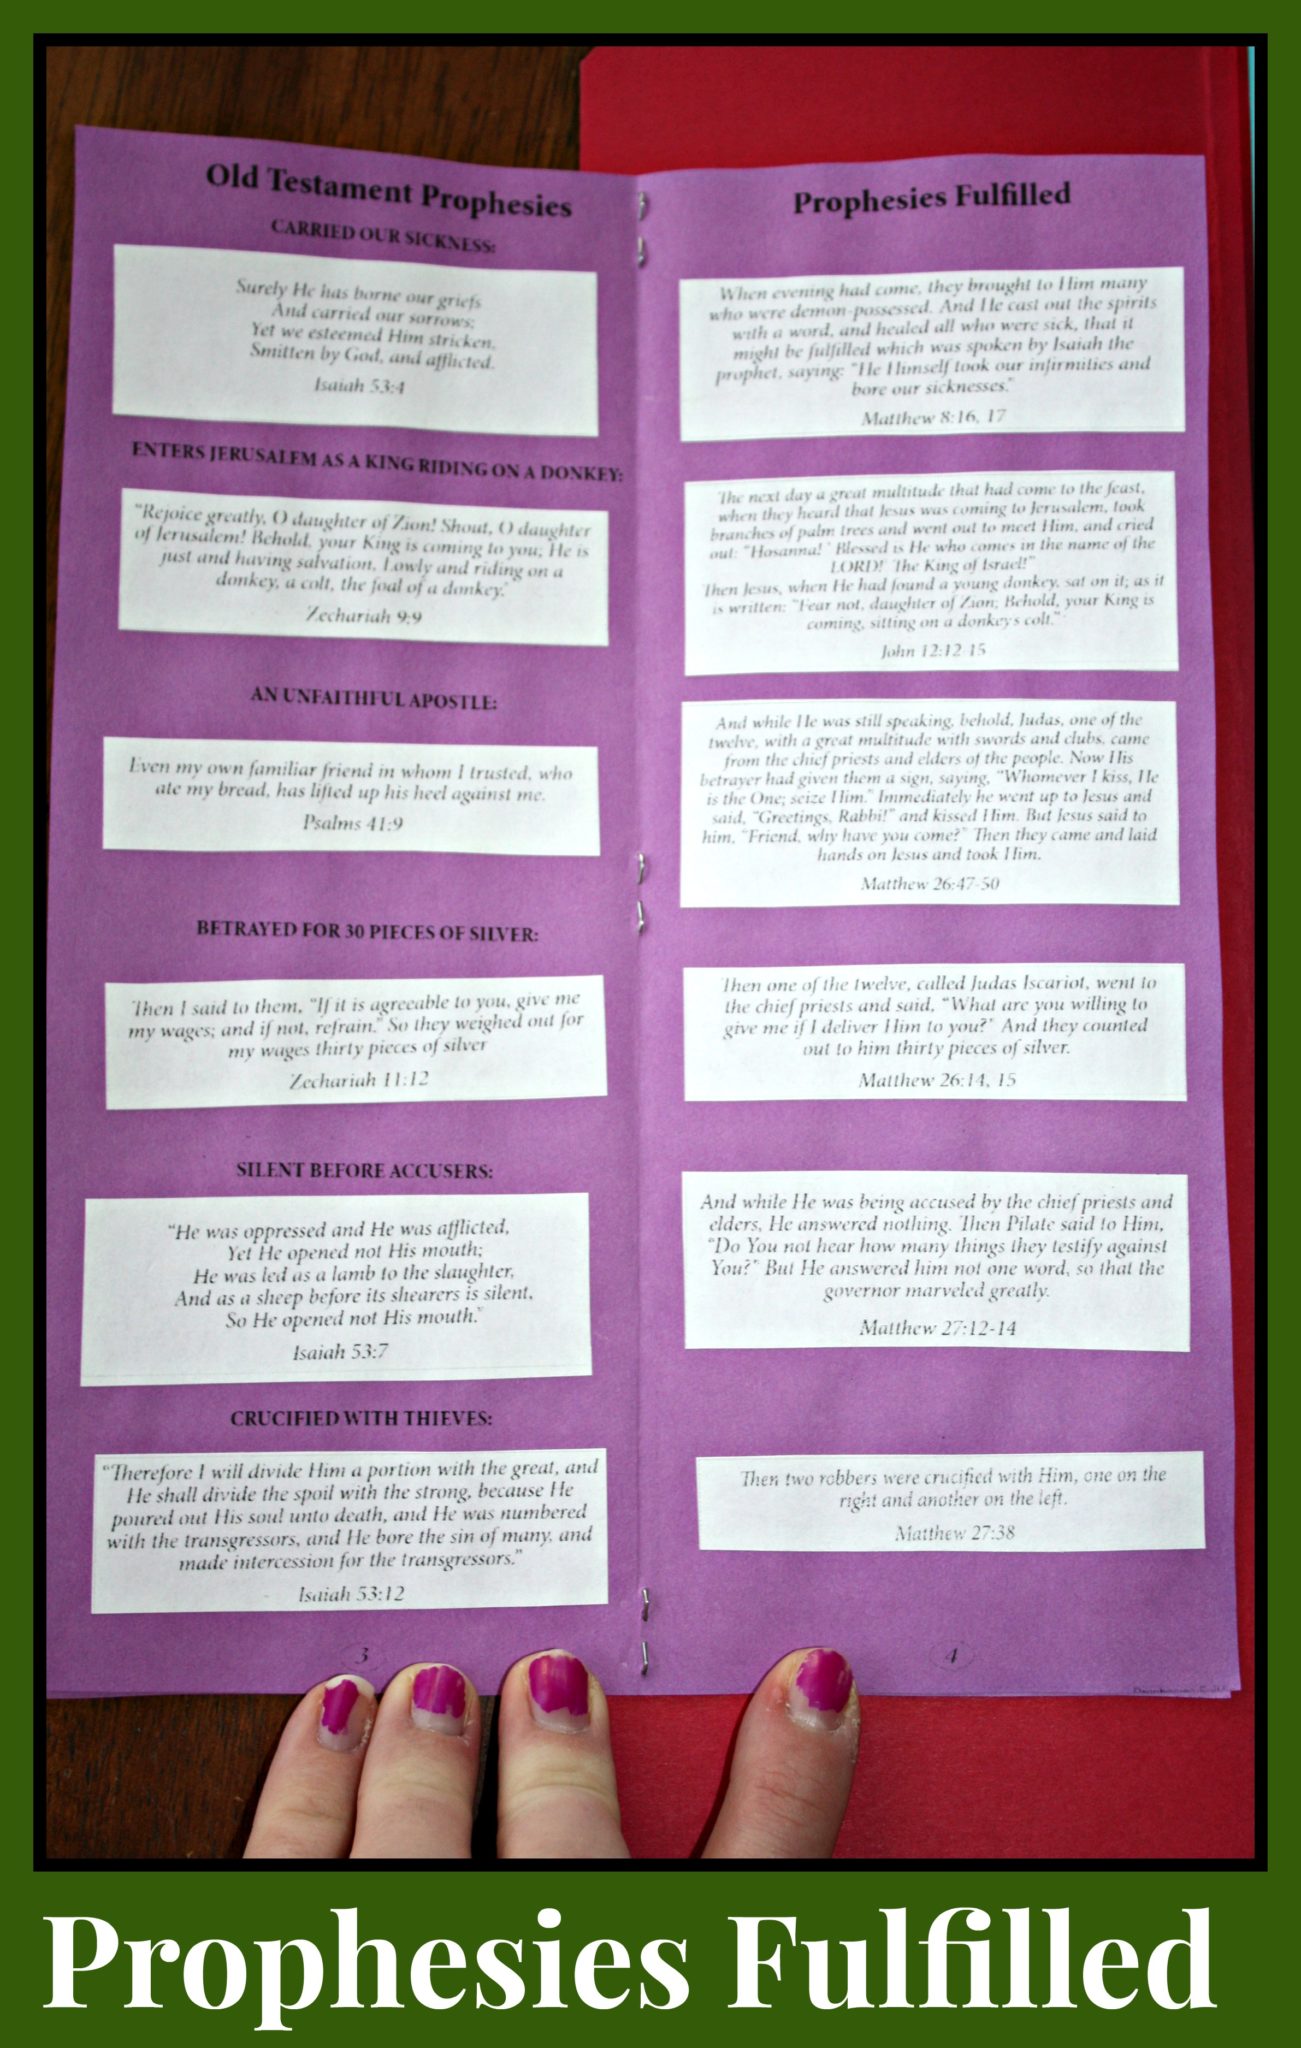 Old Testament Prophesies
CARRIED OUR SICKNESS:
Surely He has borne our griefs
And carried our sorrows;
Yet we esteemed Him stricken,
Smitten by God, and afflicted.
Isaiah 53:4
ENTERS JERUSALEM AS A KING RIDING ON A DONKEY:
"Rejoice greatly, O daughter of Zion! Shout, O daughter
of Jerusalem! Behold, your King is coming to you; He is
just and having salvation, Lowly and riding on a
donkey, a colt, the foal of a donkey."
Zechariah 9:9
AN UNFAITHFUL APOSTLE:
Even my own familiar friend in whom I trusted, who
ate my bread, has lifted up his heel against me.
Psalms 41:9
BETRAYED FOR 30 PIECES OF SILVER:
Then I said to them, "If it is agreeable to you, give me
my wages; and if not, refrain." So they weighed out for
my wages thirty pieces of silver
Zechariah 11:12
SILENT BEFORE ACCUSERS:
"He was oppressed and He was afflicted,
Yet He opened not His mouth;
He was led as a lamb to the slaughter,
And as a sheep before its shearers is silent,
So He opened not His mouth."
Isaiah 53:7
CRUCIFIED WITH THIEVES:
"Therefore I will divide Him a portion with the great, and
He shall divide the spoil with the strong, because He
poured out His soul unto death, and He was numbered
with the transgressors, and He bore the sin of many, and
made intercession for the transgressors."
Isaiah 53:12
3
Prophesies Fulfilled
When evening had come, they brought to Him many
who were demon-possessed. And He cast out the spirits
with a word, and healed all who were sick, that it
might be fulfilled which was spoken by Isaiah the
prophet, saying: "He Himself took our infirmities and
bore our sicknesses."
Matthew 8:16, 17
The next day a great multitude that had come to the feast,
when they heard that Jesus was coming to Jerusalem, took
branches of palm trees and went out to meet Him, and cried
out: "Hosanna! ' Blessed is He who comes in the name of the
LORD!' The King of Israel!"
Then Jesus, when He had found a young donkey, sat on it; as it
is written: "Fear not, daughter of Zion; Behold, your King is
coming, sitting on a donkeys colt."
John 12:12-15
And while He was still speaking, behold, Judas, one of the
twelve, with a great multitude with swords and clubs, came
from the chief priests and elders of the people. Now His
betrayer had given them a sign, saying, "Whomever I kiss, He
is the One; seize Him." Immediately he went up to Jesus and
said, "Greetings, Rabbi!" and kissed Him. But Jesus said to
him, "Friend, why have you come?" Then they came and laid
hands on Jesus and took Him.
Matthew 26:47-50
Then one of the twelve, called Judas Iscariot, went to
the chief priests and said, "What are you willing to
give me if I deliver Him to you?" And they counted
out to him thirty pieces of silver.
Matthew 26:14, 15
And while He was being accused by the chief priests and
elders, He answered nothing. Then Pilate said to Him,
"Do You not hear how many things they testify against
You?" But He answered him not one word, so that the
governor marveled greatly.
Matthew 27:12-14
Then two robbers were crucified with Him, one on the
right and another on the left.
Matthew 27:38
4
Prophesies Fulfilled